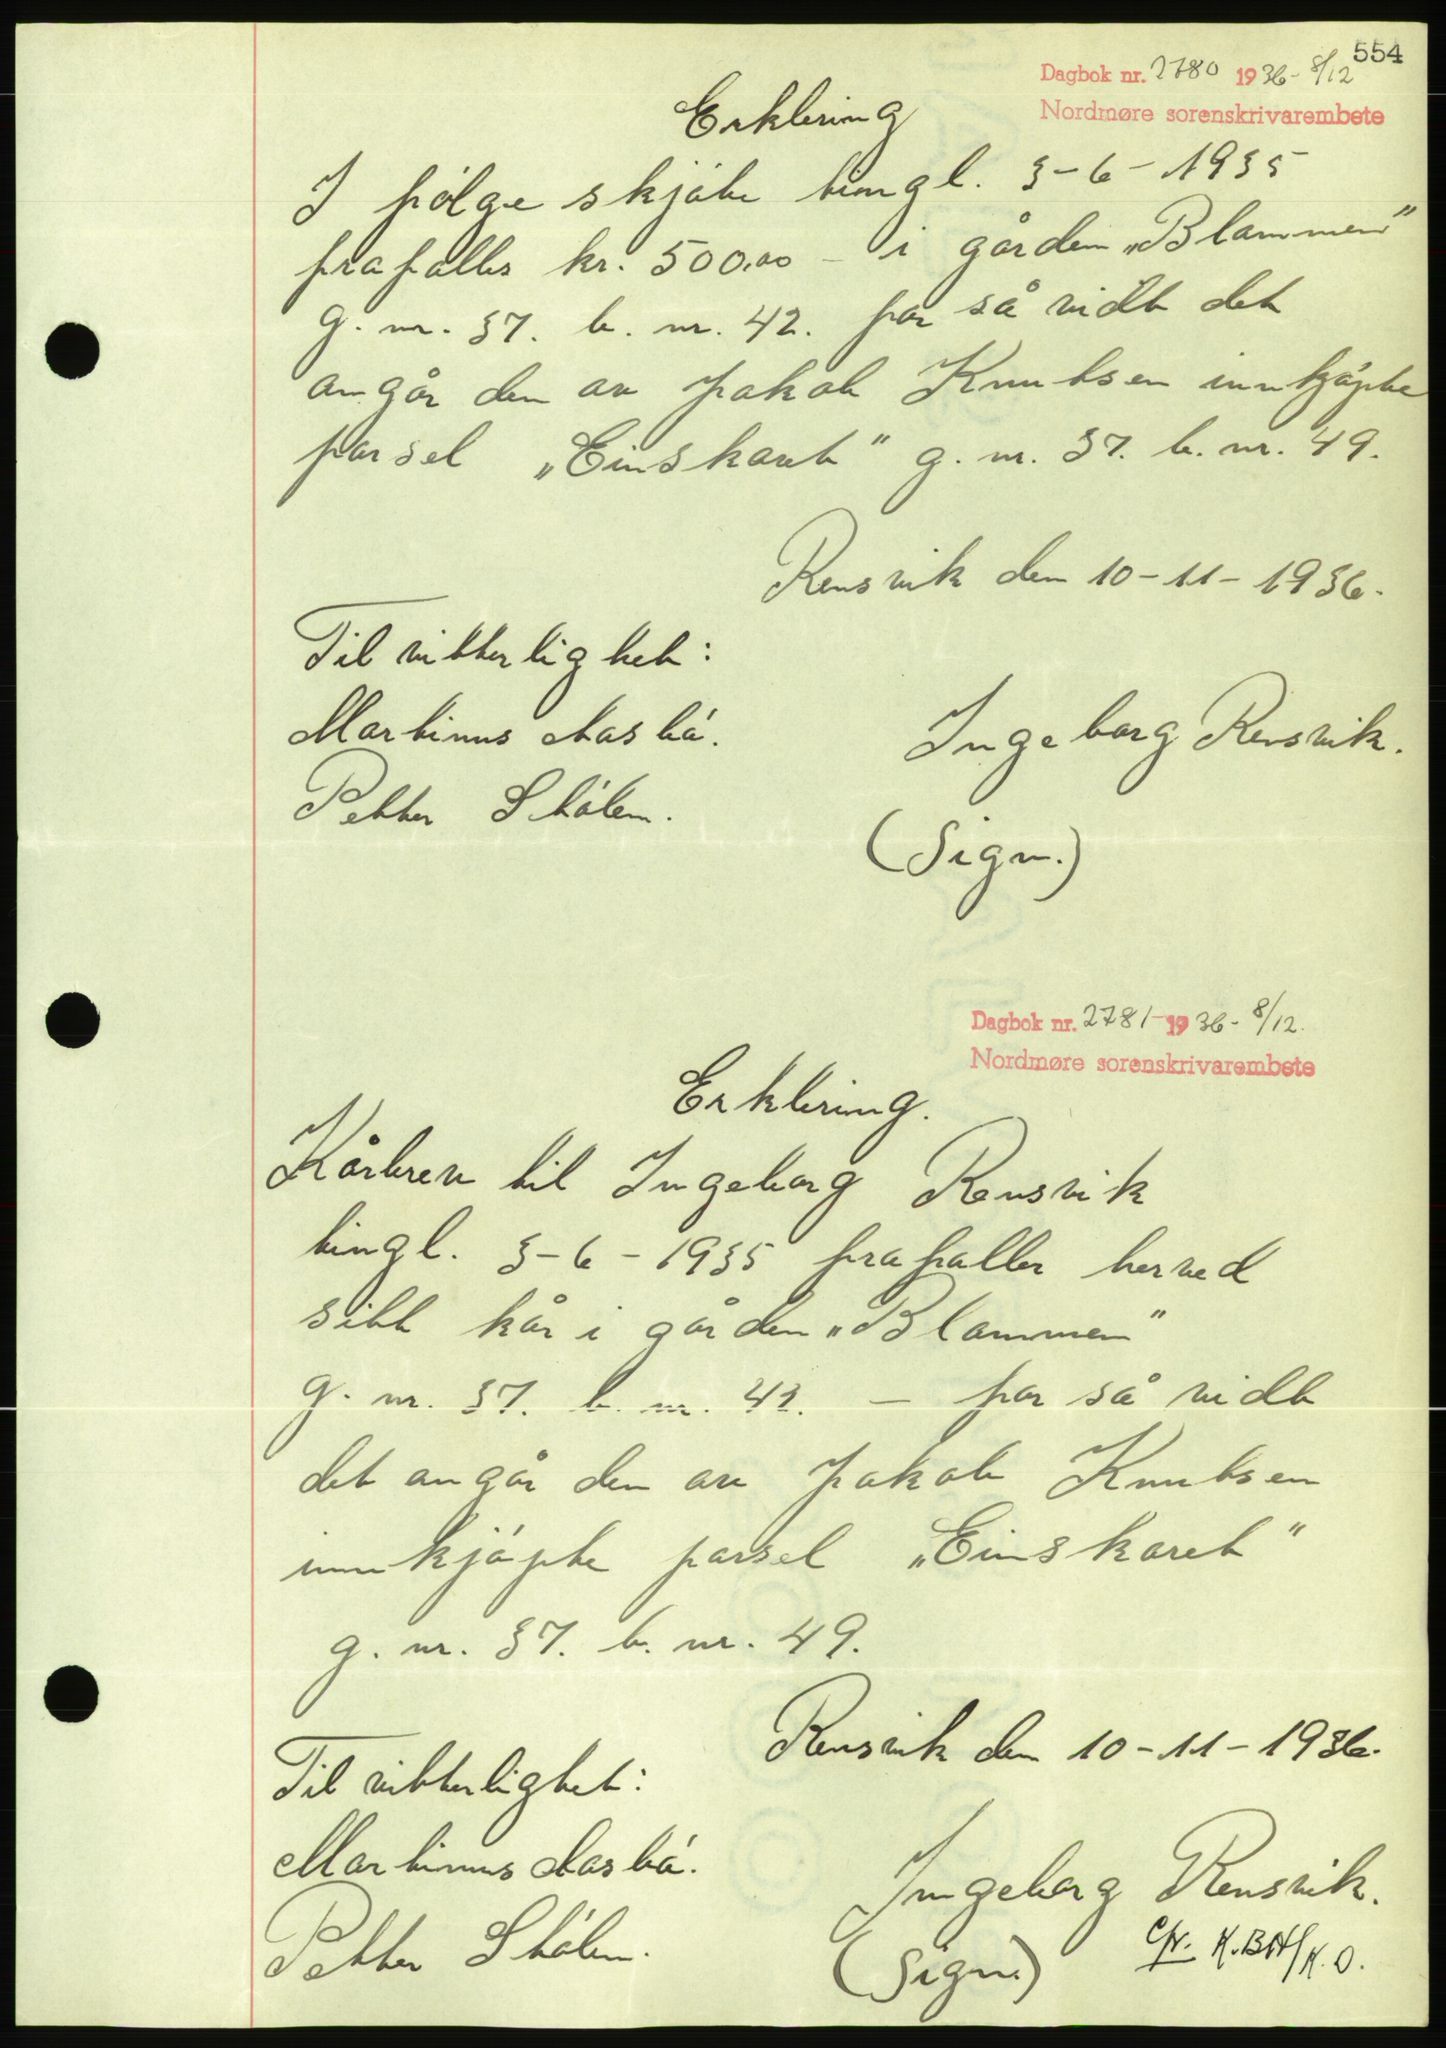 554
Dagbok nr. 2780 1936 - 8/12
Nordmøre sorenskrivarembete
Erklering
I følge skjöte tingl. 3-6-1935
frafalles kr. 500.00 - i gården „Blammen"
g. nr. 37. b. nr. 42. for så vidt det
angår den av Jakob Knutsen innkjöpte
parsel „Einskaret" g. nr. 37. b. nr. 49.
Rensvik den 10-11-1936.
Til vitterlighet:
Martinus Aasbö.
Ingeborg Rensvik.
Petter Stölen.
(Sign.)
Dagbok nr. 2781 - 1936 - 8/12.
Nordmøre sorenskrivarembete
Erklering.
Kårbrev til Ingeborg Rensvik
tingl. 3-6-1935 frafaller herved
sitt kår i gården „Blammen"
g. nr. 37. b. nr. 42. - for så vidt
det angår den av Jakob Knutsen
innkjöpte parsel „Einskaret"
g. nr. 37. b. nr. 49.
Rensvik den 10-11-1936.
Til vitterlighet:
Martinus Aasbö.
Ingeborg Rensvik.
Petter Stölen.
(Sign.)
K.O.